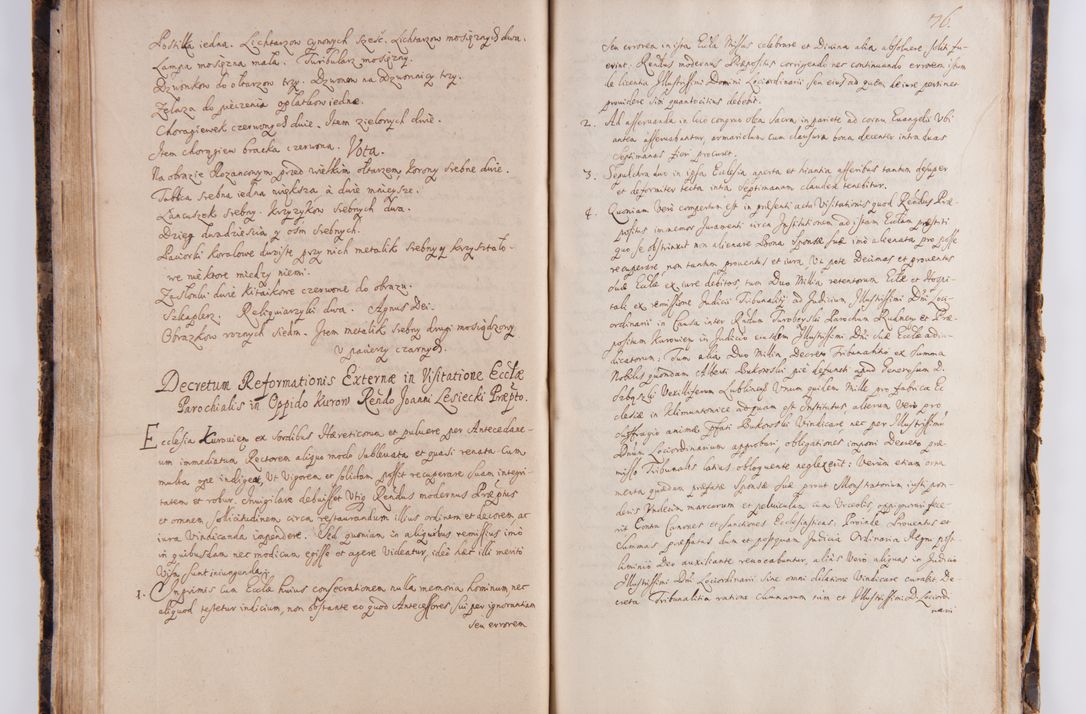 Postilla iedna. Lichtarzow cynowych szesc. Lichtarzow mosięznych dwa.
Lampa mosięzna mała. Turibularz mosięzny.
Dzwonkow do ołtarzow trzy. Dzwonow na Dzwonnicy trzy.
Zelaza do pieczenia opłatkow iedne.
Choragiewek czerwonych dwie. Item zielonych dwie.
Item chorągiew bracka czerwona. Vota.
Na obrazie Rozancowym przed wielkim ołtarzem, korony srebne dwie.
Tablica srebna iedna większa à dwie mnieysze.
Łancuszek srebny. Krzyzykow srebnych dwa.
Dzieg dwadziescia y osm srebnych.
Paciorki koralowe dwoiste przy nich metalik srebny y krzysztalo-
we niektore między niemi.
Zasłonki dwie kitaikowe czerwone do obrazu.
Szkaplerz. Reliquiarzyki dwa. Agnus Dei.
Obrazkow roznych siedm. Item metalik srebny drugi mosiądzowy
V pacierzy czarnych.
Decretum Reformationis Externæ in Visitatione Ecclæ
Parochialis in Oppido Kurow Rendo Joanni Lesiecki Præpto.
Ecclesia Kuroviem ex sordibus Hæreticorum et puluere per Antecedane-
um immediatum Rectorem aliquo modo subleuata et quasi renata Cum
multa ope indigeat, Vt Vigorem et solitam posset recuperare suam integri-
tatem et robur inuigilare debuisset Vtiq Rendus modernus Præptus
et omnem sollicitudinem circa restaurandum illius ordinem et decorem ac
iura Vindicanda impendere. Sed quoniam in aliquibus remissius imò
in quibusdam nec modicum egisse et agere Videatur, ideò hæc illi meriti
Visu sunt iniungendaː
1. Inprimis Cum Ecclæ huius consecrationem nulla memoria hominum nec
aliquod testetur indicium, non obstante eo quod Antecessores sui per ignorantiam
seu errorem
76.
seu errorem in ista Eccla Missas celebrare et Divina alia absoluere soliti fu-
erint. Rendus modernus Præpositus corrigendo nec continuando errorem istum
de licentia Illustrissimi Domini Lociordinarii seu eius ad quem de iure pertinet
prouidere sibi quantocitius debebit.
2. Ad asseruanda in loco congruo olea Sacra in pariete ad cornu Euangelii Vbi
antea asseruabantur, armariolum cum clausura bona decenter intra duas
Septimanas fieri procuret.
3. Sepulchra duo in ipsa Ecclesia aperta et hiantia asseribus tantum desuper
et deformiter tecta intra Septimanam claudere tenebitur.
4. Quoniam Verò compertum est in præsenti actu Visitationis quod Rendus Præ-
positus immemor Iuramenti circa Institutionem ad istam Ecclam præstiti
quo se obstrinxit non alienare Bona Sponsæ suæ imò alienata pro posse
recuperare, non tantum prouentus et iura, Vt pote Decimas et prouentus
suæ Ecclæ ex iure debitos, tum Duo Millia retentorum Ecclæ et Hospi-
tali ex remissione Iudicii Tribunalitii ad Iudicium Illustrissimi Dni Loci-
ordinarii in Causa inter Rndum Turobeyski Parochum Rudnen et Præ-
positum Kuroviem in Iudicio eiusdem Illustrissimi Dni suæ Ecclæ adiu-
dicatorum. Tum alia Duo Millia Decreto Tribunalitio ex Summa
Nobilis quondam Alberti Bukowski pie defuncti apud Generosum D.
Vexilliferum Lublinen Vnum quidem Mille pro fabrica Ec-
clesiæ in Klimuntowice ad quam est Institutus, alterum Verò pro
suffragio animæ præfati Bukowski Vindicare nec per Illustrissimū
Dnūm Lociordinarium approbari, obligationes imponi Decreto præ-
misso Tribunalis latius obloquente neglexerit: Verum etiam orna
menta quædam præfatæ Sponsæ suæ prout Monstratorium iusti pon-
deris Vndecim marcarum et peluiculam cum Vrceolis oppignorari fece-
rit Contra Canones et Sanctiones Ecclesiasticas. Proinde Prouentus et
Summas præfatas dum et postquam Iudicia Ordinaria Regni post-
liminio Deo auxiliante reuocabuntur, aliàs Verò aliquas in Iudicio
Illustrissimi Dni Lociordinarii Sine omni dilatione Vindicare curabit De-
creta Tribunalitia ratione summarum tum et Illustrissimi D. Lociordi
narii